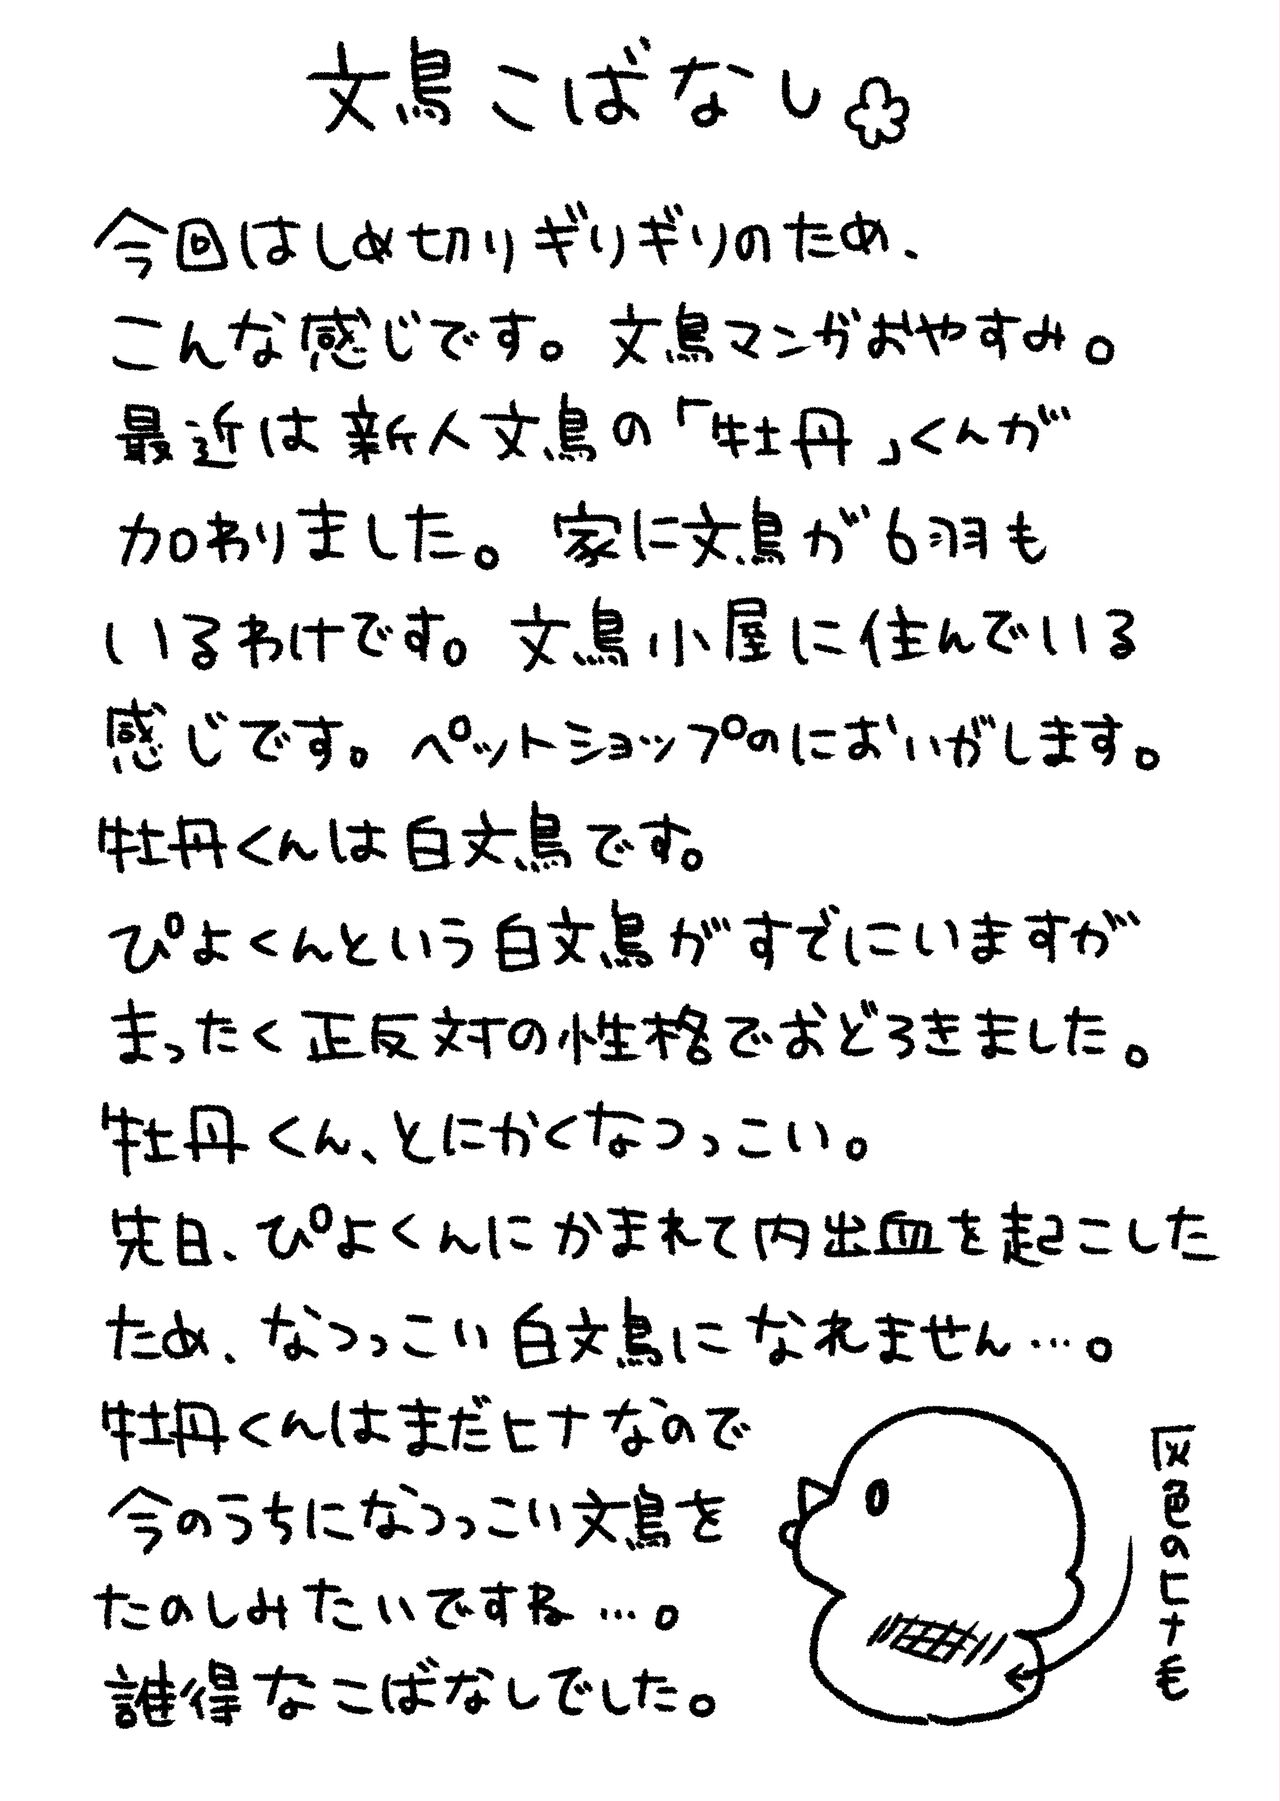 文鳥こばなし
今回はしめ切りぎりぎりのため、
こんな感じです。文鳥マンガおやすみ。
最近は新人文鳥の「牡丹」くんが
加わりました。家に文鳥が6羽も
いるわけです。文鳥小屋に住んでいる
感じです。ペットショップのにおいがします。
牡丹くんは白文鳥です。
ぴよくんという白文鳥がすでにいますが
まったく正反対の性格でおどろきました。
牡丹くん、とにかくなつっこい。
先日、ぴよくんにかまれて内出血を起こした
ため、なつっこい白文鳥になれません…。
牡丹くんはまだヒナなので
今のうちになつっこい文鳥を
たのしみたいですね…。
誰得なこばなしでした。
灰色のヒナ毛